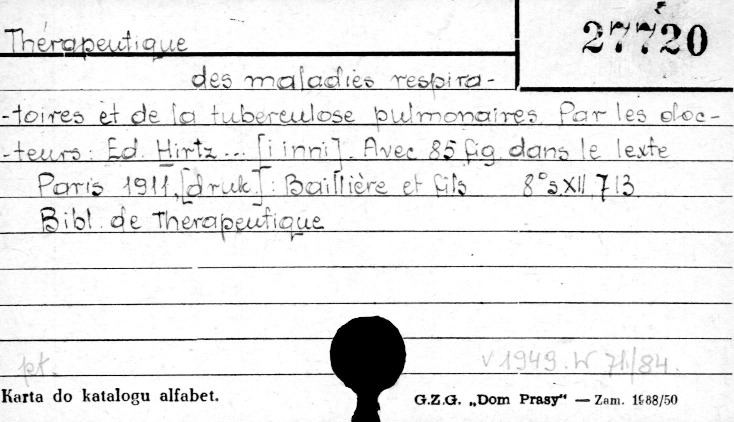 Thérapeutique
27720
des maladies respira-
-toires et de la tuberculose pulmonaires. Par les doc-
-teurs: Ed. Hirtz... [i inni]. Avec 85 fig. dans le texte
Paris 1911, [druk.]: Baillière et fils 8° s. XII, 713
Bibl. de Thérapeutique
pt. v 1949. W 71/84.
Karta do katalogu alfabet. G.Z.G. „Dom Prasy“ — Zam. 1988/50